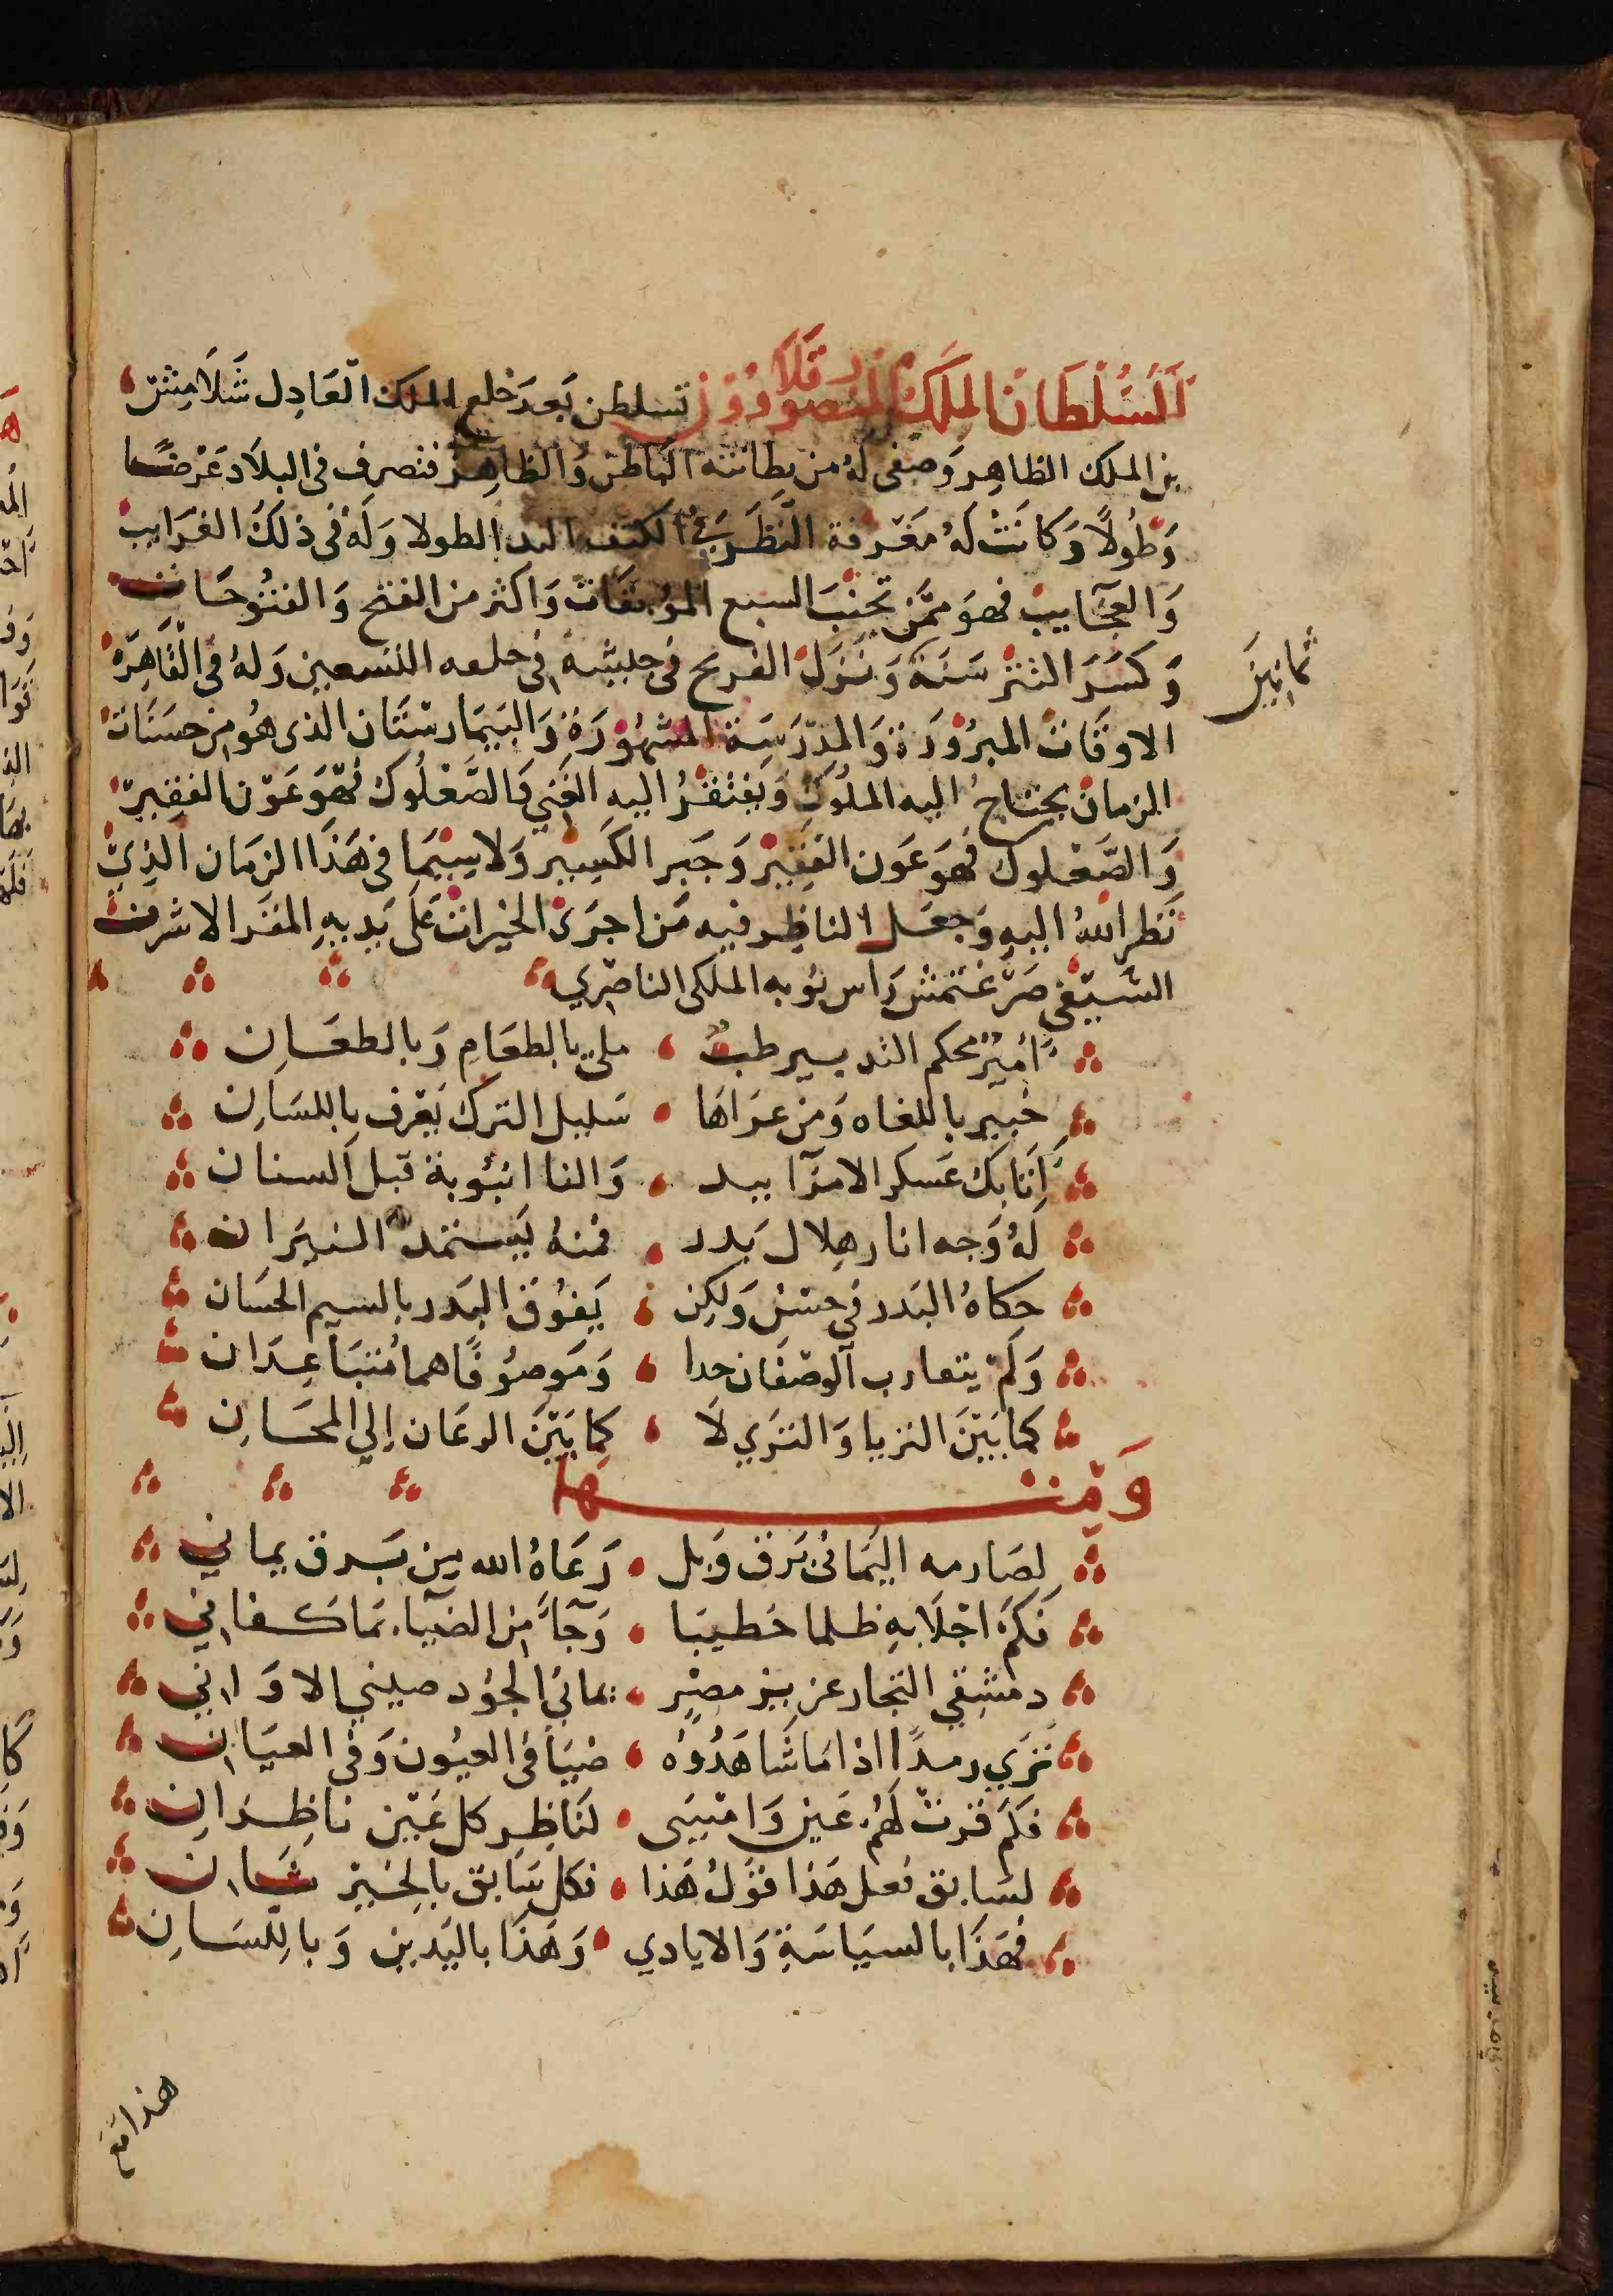 السلطان الملك المنصور قلاوون تسلطن بعد خلع الملك العادل شلامش
بن الملك الظاهر وصفى له من بطانته الباطن والظاهر فتصرف في البلاد عرضا
وطولا وكانت له معرفة النظر في الكتف اليد الطولا وله في ذلك الغرايب
والعجايب فهو ممن تجنب السبع الموبقات واكثر من الفتح والفتوحات
وكسر التتر سنة ونزل الفرنج في التسعين وله في القاهرة
ثمانين
الاوقات المبرورة والمدرسة المشهورة والبيمارستان الذي هو من حسنات
الزمان يحتاج اليه الملوك ويفتقر اليه الغني والصعلوك فهو عون الفقير
والصعلوك فهو عون الفقير وجبر الكسير ولا سيما في هذا الزمان الذي
نظر الله اليه وجعل الناظر فيه من اجرى الخيرات على يديه المقر الاشرف
السيفي صرغتمش راس نوبه الملكي الناصري
أمير محكم التدبير طب ملي بالطعام وبالطعان
خبير باللغاه ومن عزاها سليل الترك يعرف باللسان
أتابك عسكر الامرآ بيد والنا انبوبة قبل السنان
له وجه انار هلال بدر فمنه يستمد النيران
حكاه البدر في حسن ولكن يفوق البدر بالسيم الحسان
ولم يتقارب الوصفان حدا وموصوفاهما متباعدان
كما بين الثريا والثري لا كما بين الرعان الي المحسان
ومنها
لصارمه اليماني برق وبل رعاه الله من برق يماني
فكم اجلا به ظلما خطيبا وجآ من الضيآء بما كفاني
دمشقي النجار عزيز مصر يماني الجود صيني الاواني
تري رمدا اذا ما شاهدوه ضيأ في العيون وفي العيان
فكم قرت لهم عين وامسى لناظر كل عين ناظران
لسابق فعل هذا قول هذا فكل سابق بالخير شان
فهذا بالسياسة والايادي وهذا باليدين وباللسان
هذا مع